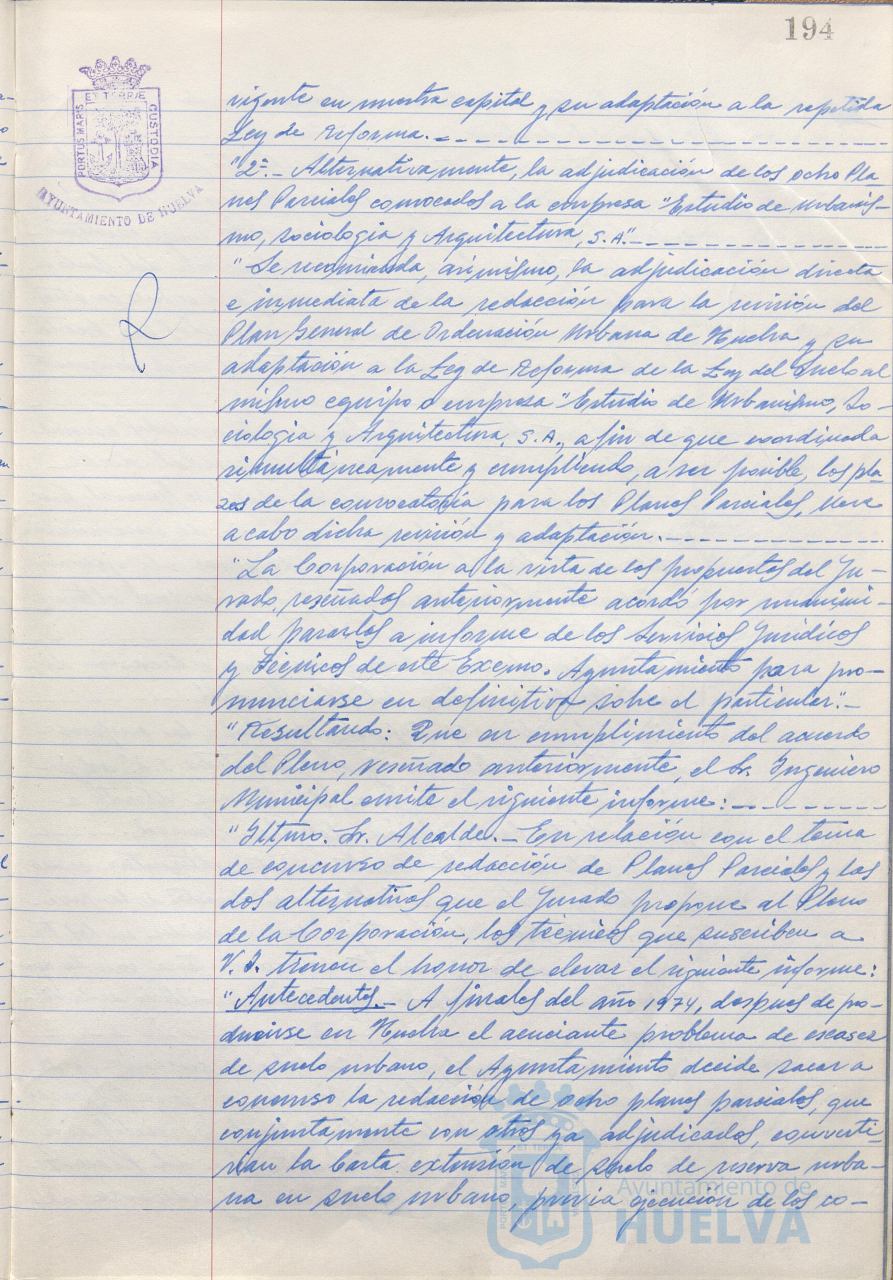 194
PORTUS MARIS
ET TERRÆ
CUSTODIA
AYUNTAMIENTO DE HUELVA
vigente en nuestra capital y su adaptación a la repetida
Ley de Reforma.-
"2º.- Alternativamente, la adjudicación de los ocho Pla
nes Parciales convocados a la empresa "Estudio de Urbanis-
mo, sociología y Arquitectura, S.A".-
"Se recomienda, asimismo, la adjudicación directa
e inmediata de la redacción para la revisión del
Plan General de Ordenación Urbana de Huelva y su
adaptación a la Ley de Reforma de la Ley del Suelo al
mismo equipo o empresa "Estudio de Urbanismo, So-
ciología y Arquitectura, S.A., a fin de que coordinada
simultáneamente y cumpliendo, a ser posible, los pla-
zos de la convocatoria para los Planes Parciales, lleve
a cabo dicha revisión y adaptación.-
"La Corporación a la vista de las propuestas del Ju-
rado, reseñadas anteriormente acordó por unanimi-
dad pasarlas a informe de los Servicios Jurídicos
y Técnicos de este Excmo. Ayuntamiento para pro-
nunciarse en definitiva sobre el particular".-
"Resultando: Que en cumplimiento del acuerdo
del Pleno, reseñado anteriormente, el Sr. Ingeniero
Municipal emite el siguiente informe:-
"Iltmo. Sr. Alcalde.- En relación con el tema
de concurso de redacción de Planes Parciales y las
dos alternativas que el Jurado propone al Pleno
de la Corporación, los técnicos que suscriben a
V.I. tienen el honor de elevar el siguiente informe:
"Antecedentes.- A finales del año 1974, después de pro-
ducirse en Huelva el acuciante problema de escasez
de suelo urbano, el Ayuntamiento decide sacar a
concurso la redacción de ocho planes parciales, que
conjuntamente con otros, ya adjudicados, converti-
rían la basta extensión de suelo de reserva urba-
na en suelo urbano, previa ejecución de los co-
Ayuntamiento de
HUELVA